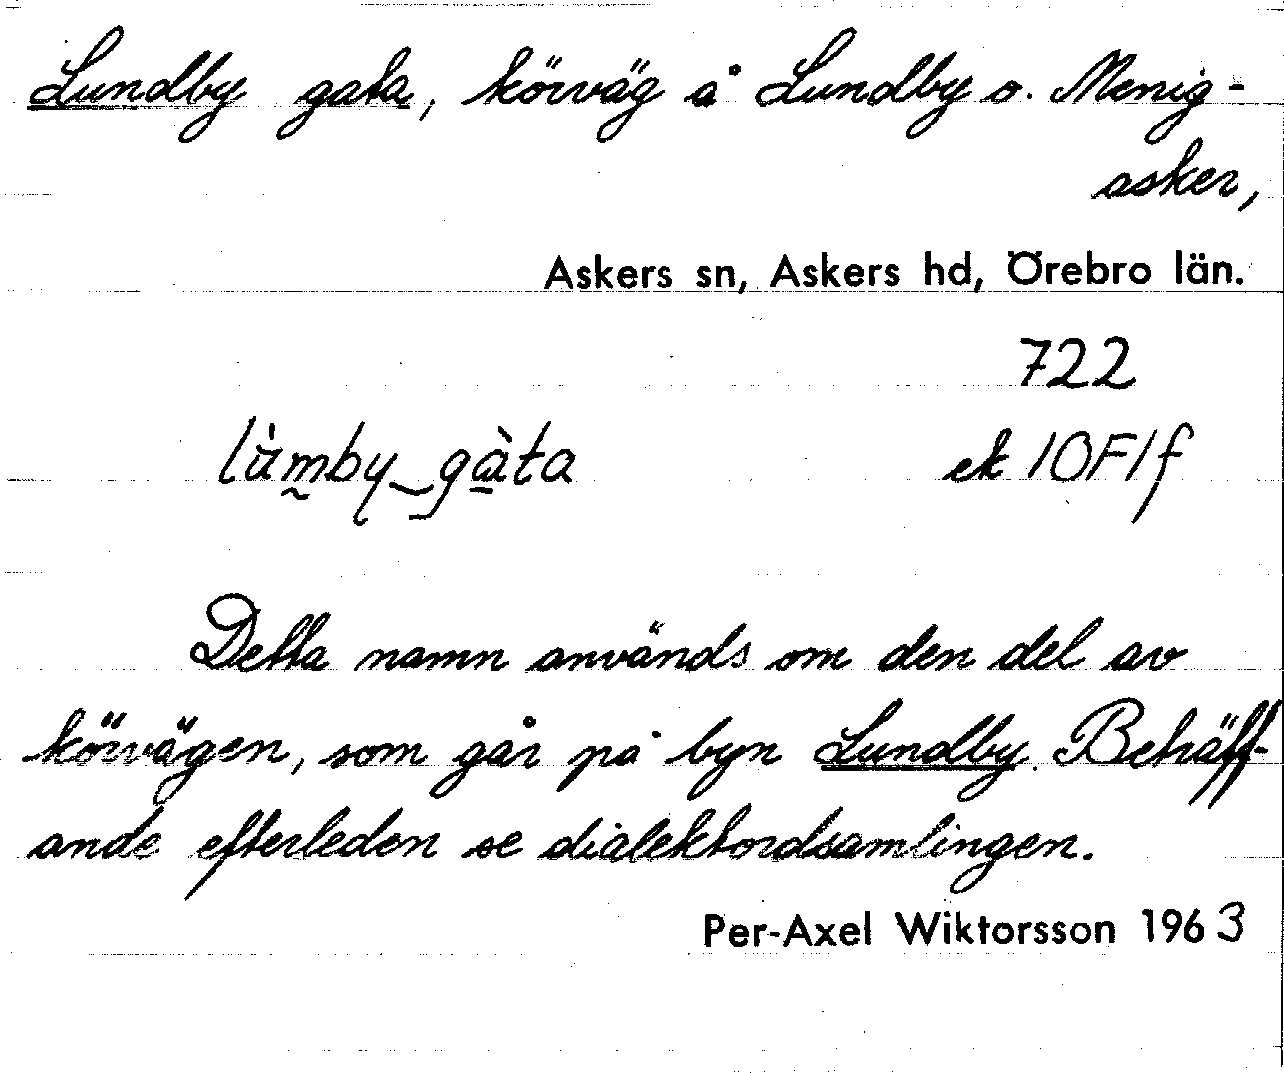 Lundby gata, körväg å Lundby o. Menig-
asker,
Askers sn, Askers hd, Örebro län.
722
lùmby‿gàta ek 10F1f
Detta namn används om den del av
körvägen, som går på byn Lundby. Beträff-
ande efterleden se dialektordsamlingen.
Per-Axel Wiktorsson 1963